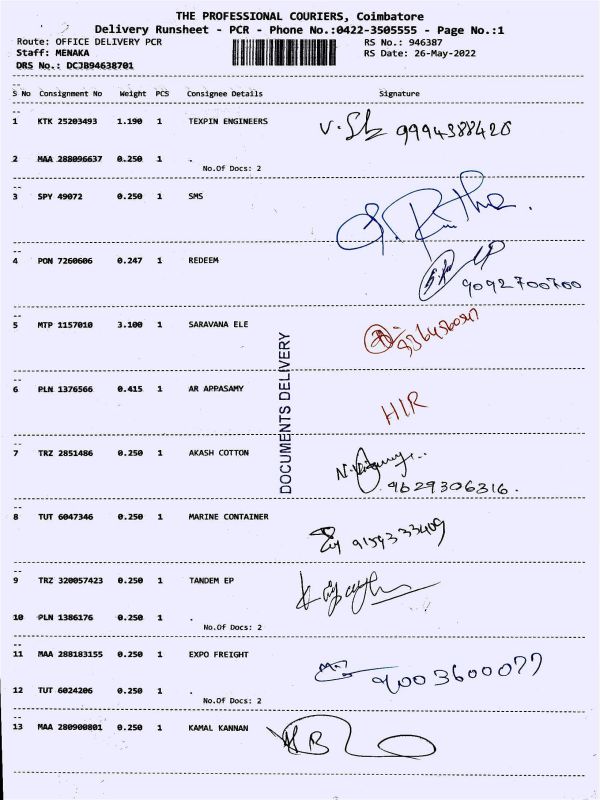 THE PROFESSIONAL COURIERS, Coimbatore
Delivery Runsheet - PCR - Phone No.:0422-3505555 - Page No.:1
Route: OFFICE DELIVERY PCR
RS No.: 946387
Staff: MENAKA
RS Date: 26-May-2022
DRS No.: DCJB94638701
S No Consignment No Weight PCS Consignee Details Signature
1 KTK 25203493 1.190 1 TEXPIN ENGINEERS
9994388420
2 MAA 288096637 0.250 1 .
No.Of Docs: 2
3 SPY 49072 0.250 1 SMS
4 PON 7260606 0.247 1 REDEEM
9092700700
5 MTP 1157010 3.100 1 SARAVANA ELE
DOCUMENTS DELIVERY
6 PLN 1376566 0.415 1 AR APPASAMY
HIR
7 TRZ 2851486 0.250 1 AKASH COTTON
9629306316.
8 TUT 6047346 0.250 1 MARINE CONTAINER
9159333409
9 TRZ 320057423 0.250 1 TANDEM EP
10 PLN 1386176 0.250 1 .
No.Of Docs: 2
11 MAA 288183155 0.250 1 EXPO FREIGHT
9003600077
12 TUT 6024206 0.250 1 .
No.Of Docs: 2
13 MAA 280900801 0.250 1 KAMAL KANNAN